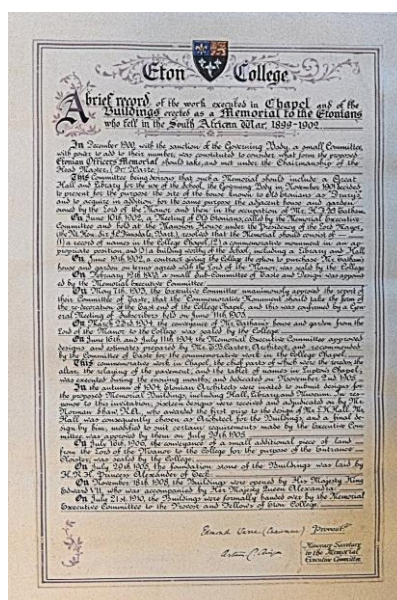 Eton College
A brief record of the work executed in Chapel and of the
Buildings erected as a Memorial to the Etonians
who fell in the South African War, 1899-1902
In December 1900, with the sanction of the Governing Body, a small Committee,
with power to add to their number, was constituted to consider what form the proposed
Etonian Officers Memorial should take, and met under the Chairmanship of the
Head Master, (Dr Warre.)
This Committee being desirous that such a Memorial should include a Great
Hall and Library for the use of the School, the Governing Body in November 1901 decided
to present for the purpose the site of the house known to old Etonians as
and to acquire in addition for the same purpose the adjacent house and garden,
owned by the Lord of the Manor, and then in the occupation of Mr.
On June 10th 1902, a Meeting of Old Etonians, called by the Memorial Executive
Committee and held at the Mansion House under the Presidency of the Lord Mayor,
(the Rt. Hon. Sir J. Dimsdale, Bart.) resolved that the Memorial should consist of
(1) a record of names in the College Chapel, (2) a commemorative monument in an ap-
propriate position, and (3) a building worthy of the School, including a Library and Hall.
On June 19th 1902, a contract giving the College the option to purchase Mr.
house and garden on terms agreed with the Lord of the Manor, was sealed by the College.
On February 19th 1903, a small Sub-Committee of Taste and Design was appoint-
ed by the Memorial Executive Committee.
On May 7th 1903, the Executive Committee unanimously approved the report
of their Committee of Taste, that the Commemorative Monument should take the form of
the re-decoration of the East end of the College Chapel, and this was confirmed by a Gen-
eral Meeting of Subscribers held on June 11th 1903.
On March 22nd 1904 the conveyance of house and garden from the
Lord of the Manor to the College was sealed by the College.
On June 16th and July 11th 1904 the Memorial Executive Committee approved
designs and estimates prepared by Mr. Carter, Architect, and recommended
by the Committee of Taste for the commemorative work in the College Chapel.
This commemorative work in Chapel, the chief parts of which were the
altar, the relaying of the pavement, and the tablet of names in Lupton's Chapel,
was executed during the ensuing months, and dedicated on November 2nd 1905.
In the autumn of 1904 Etonian Architects were invited to submit designs for
the proposed Memorial Buildings, including Hall, Library, and Museum. In re-
sponse to this invitation designs were received and adjudicated on by Mr.
Norman Shaw, R.A., who awarded the first prize to the design of Mr. L.K. Hall. Mr.
Hall was consequently chosen as Architect for the Buildings, and a final de-
sign by him, modified to suit certain requirements made by the Executive Com-
mittee, was approved by them on July 29th 1905.
On July 18th 1906, the conveyance of a small additional piece of land
from the Lord of the Manor to the College for the purpose of the Entrance-
Cloister, was sealed by the College.
On July 29th 1905, the foundation stone of the Buildings was laid by
H.R.H. Princess Alexander of Teck.
On November 18th 1908, the Buildings were opened by His Majesty King
Edward VII, who was accompanied by Her Majesty Queen Alexandra.
On July 21st 1910, the Buildings were formally handed over by the Memorial
Executive Committee to the Provost and Fellows of Eton College.
Edmond Warre (Chairman) Provost
Honorary Secretary
to the Memorial
Executive Committee